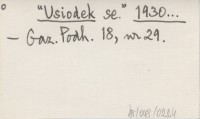 "Usiodek se." 1930...
– Gaz. Podh. 18, nr 29.